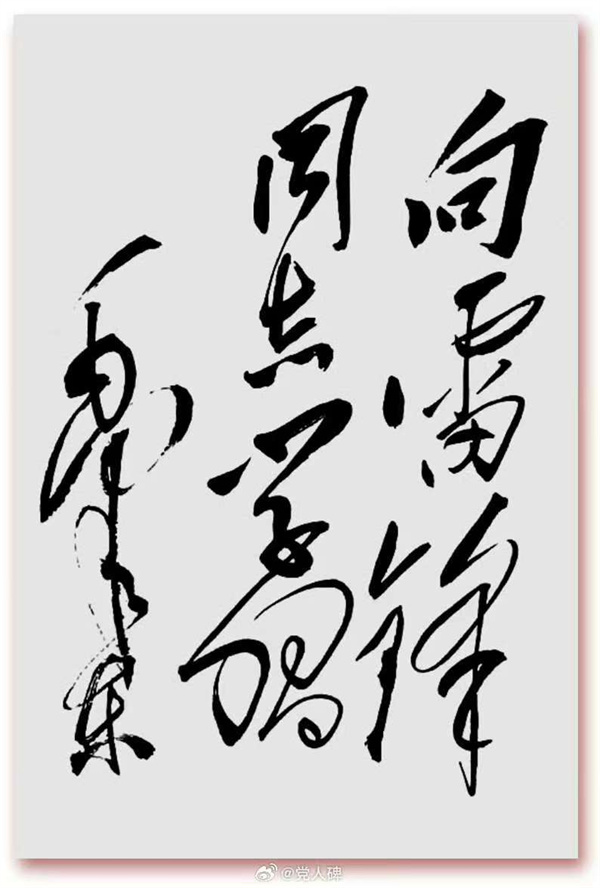 向雷锋
同志学习
毛泽东
@党人碑